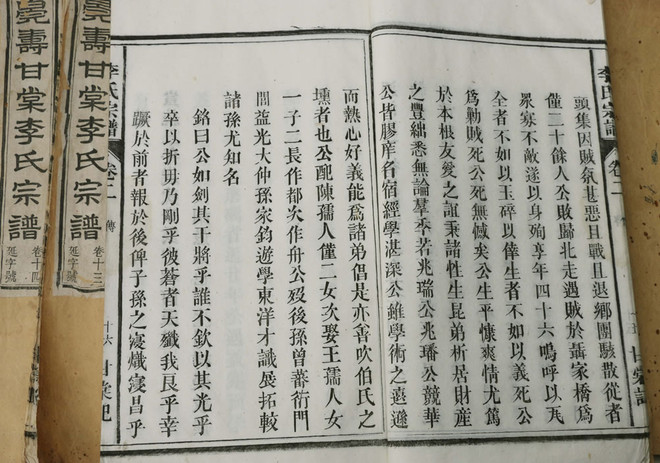 頭集因賊氛甚惡且戰且退鄉團駭散從者
僅二十餘人公敗歸北走遇賊於聶家橋爲
眾寡不敵遂以身殉享年四十六嗚呼以瓦
全者不如以玉碎以倖生者不如以義死公
爲勦賊死公死無憾矣公生平慷爽情尤篤
於本根友愛之誼秉諸性生昆弟析居財產
之豐絀悉無論羣季若兆瑞公兆璠公競華
公皆膠庠名宿經學湛深公雖學術之遠遜
而熱心好義能爲諸弟倡是亦善吹伯氏之
壎者也公配陳孺人僅二女次娶王孺人女
一子二長作都次作舟公歿後孫曾蕃衍門
閭益光大仲孫家鈞遊學東洋才識展拓較
諸孫尤知名
銘曰公如劍其干將乎誰不欽以其光乎
卒以折毋乃剛乎彼蒼者天殲我良乎幸
蹶於前者報於後俾子孫之寖熾寖昌乎
李氏宗譜
卷二
傳
十六
甘棠祀
李氏宗譜
卷二
甘棠記
堯壽甘棠李氏宗譜
卷十三
延字號
堯壽甘棠李氏宗譜
卷十四
延字號